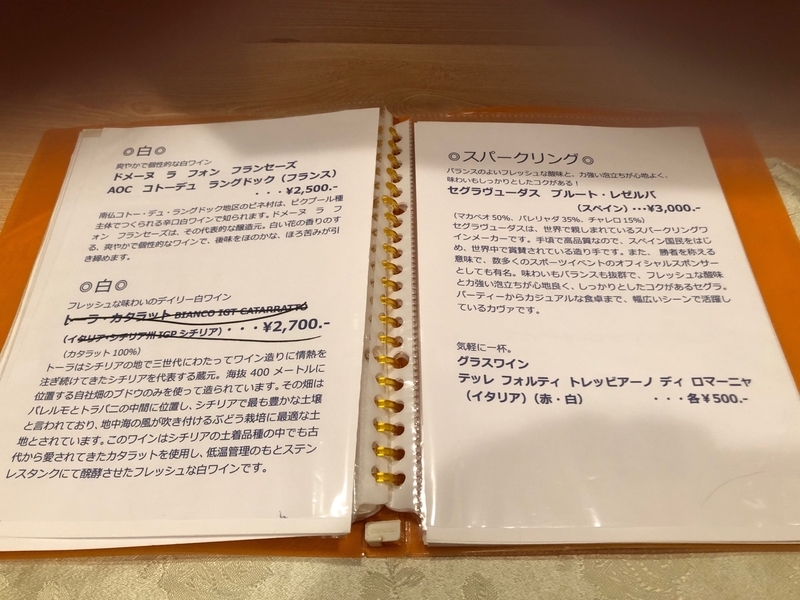 ◎白◎
爽やかで個性的な白ワイン
ドメーヌ ラ フォン フランセーズ
AOC コトーデュ ラングドック（フランス）
・・・¥2,500.-
南仏コトー・デュ・ラングドック地区のピネ村は、ピクプール種
主体でつくられる辛口白ワインで知られます。ドメーヌ ラ フ
ォン フランセーズは、その代表的な醸造元。白い花の香りのす
る、爽やかで個性的なワインで、後味をほのかな、ほろ苦みが引
き締めます。
◎白◎
フレッシュな味わいのデイリー白ワイン
トーラ・カタラット BIANCO IGT CATARRATTO
（イタリア・シチリア州 IGP シチリア）・・・¥2,700.-
（カタラット 100%）
トーラはシチリアの地で三世代にわたってワイン造りに情熱を
注ぎ続けてきたシチリアを代表する蔵元。海抜 400 メートルに
位置する自社畑のブドウのみを使って造られています。その畑は
パレルモとトラパニの中間に位置し、シチリアで最も豊かな土壌
と言われており、地中海の風が吹き付けるぶどう栽培に最適な土
地とされています。このワインはシチリアの土着品種の中でも古
代から愛されてきたカタラットを使用し、低温管理のもとステン
レスタンクにて醗酵させたフレッシュな白ワインです。
◎スパークリング◎
バランスのよいフレッシュな酸味と、力強い泡立ちが心地よく、
味わいもしっかりとしたコクがある！
セグラヴューダス ブルート・レゼルバ
（スペイン）・・・¥3,000.-
（マカベオ 50%、パレリャダ 35%、チャレロ 15%）
セグラヴューダスは、世界で親しまれているスパークリングワ
インメーカーです。手頃で高品質なので、スペイン国民をはじ
め、世界中で賞賛されている造り手です。また、 勝者を称える
意味で、数多くのスポーツイベントのオフィシャルスポンサー
としても有名。味わいもバランスも抜群で、フレッシュな酸味
と力強い泡立ちが心地良く、しっかりとしたコクがあるセグラ。
パーティーからカジュアルな食卓まで、幅広いシーンで活躍し
ているカヴァです。
気軽に一杯。
グラスワイン
テッレ フォルティ トレッビアーノ ディ ロマーニャ
（イタリア）（赤・白） ・・・各¥500.-